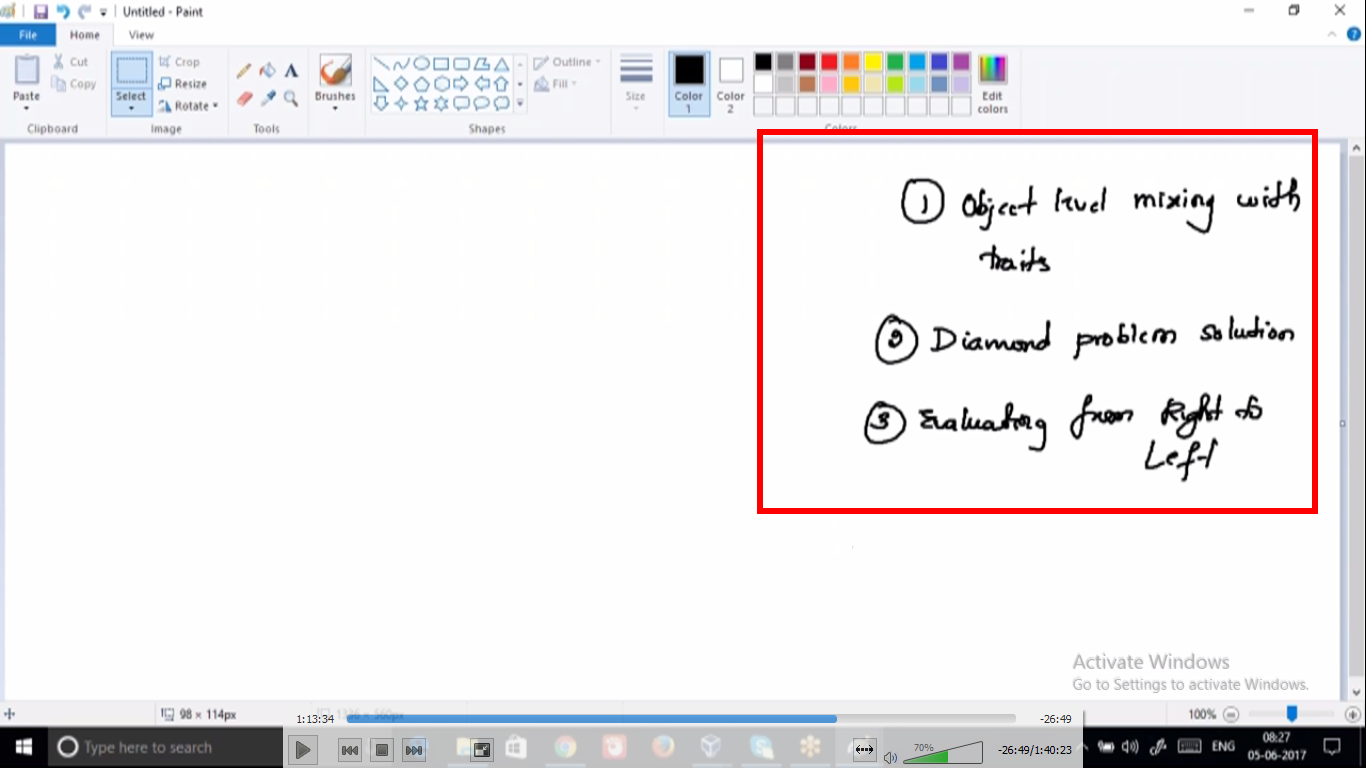 Untitled - Paint
File Home View
Paste Cut Copy Clipboard
Select Crop Resize Rotate Image
Tools
Brushes
Shapes
Outline Fill
Size
Color 1 Color 2 Edit colors
Colors
1 Object level mixing with
traits
2 Diamond problem solution
3 Evaluating from Right to
Left
Activate Windows
Go to Settings to activate Windows.
98 × 114px 1336 × 560px 100%
1:13:34 -26:49
Type here to search 70% -26:49/1:40:23 ENG 08:27
05-06-2017